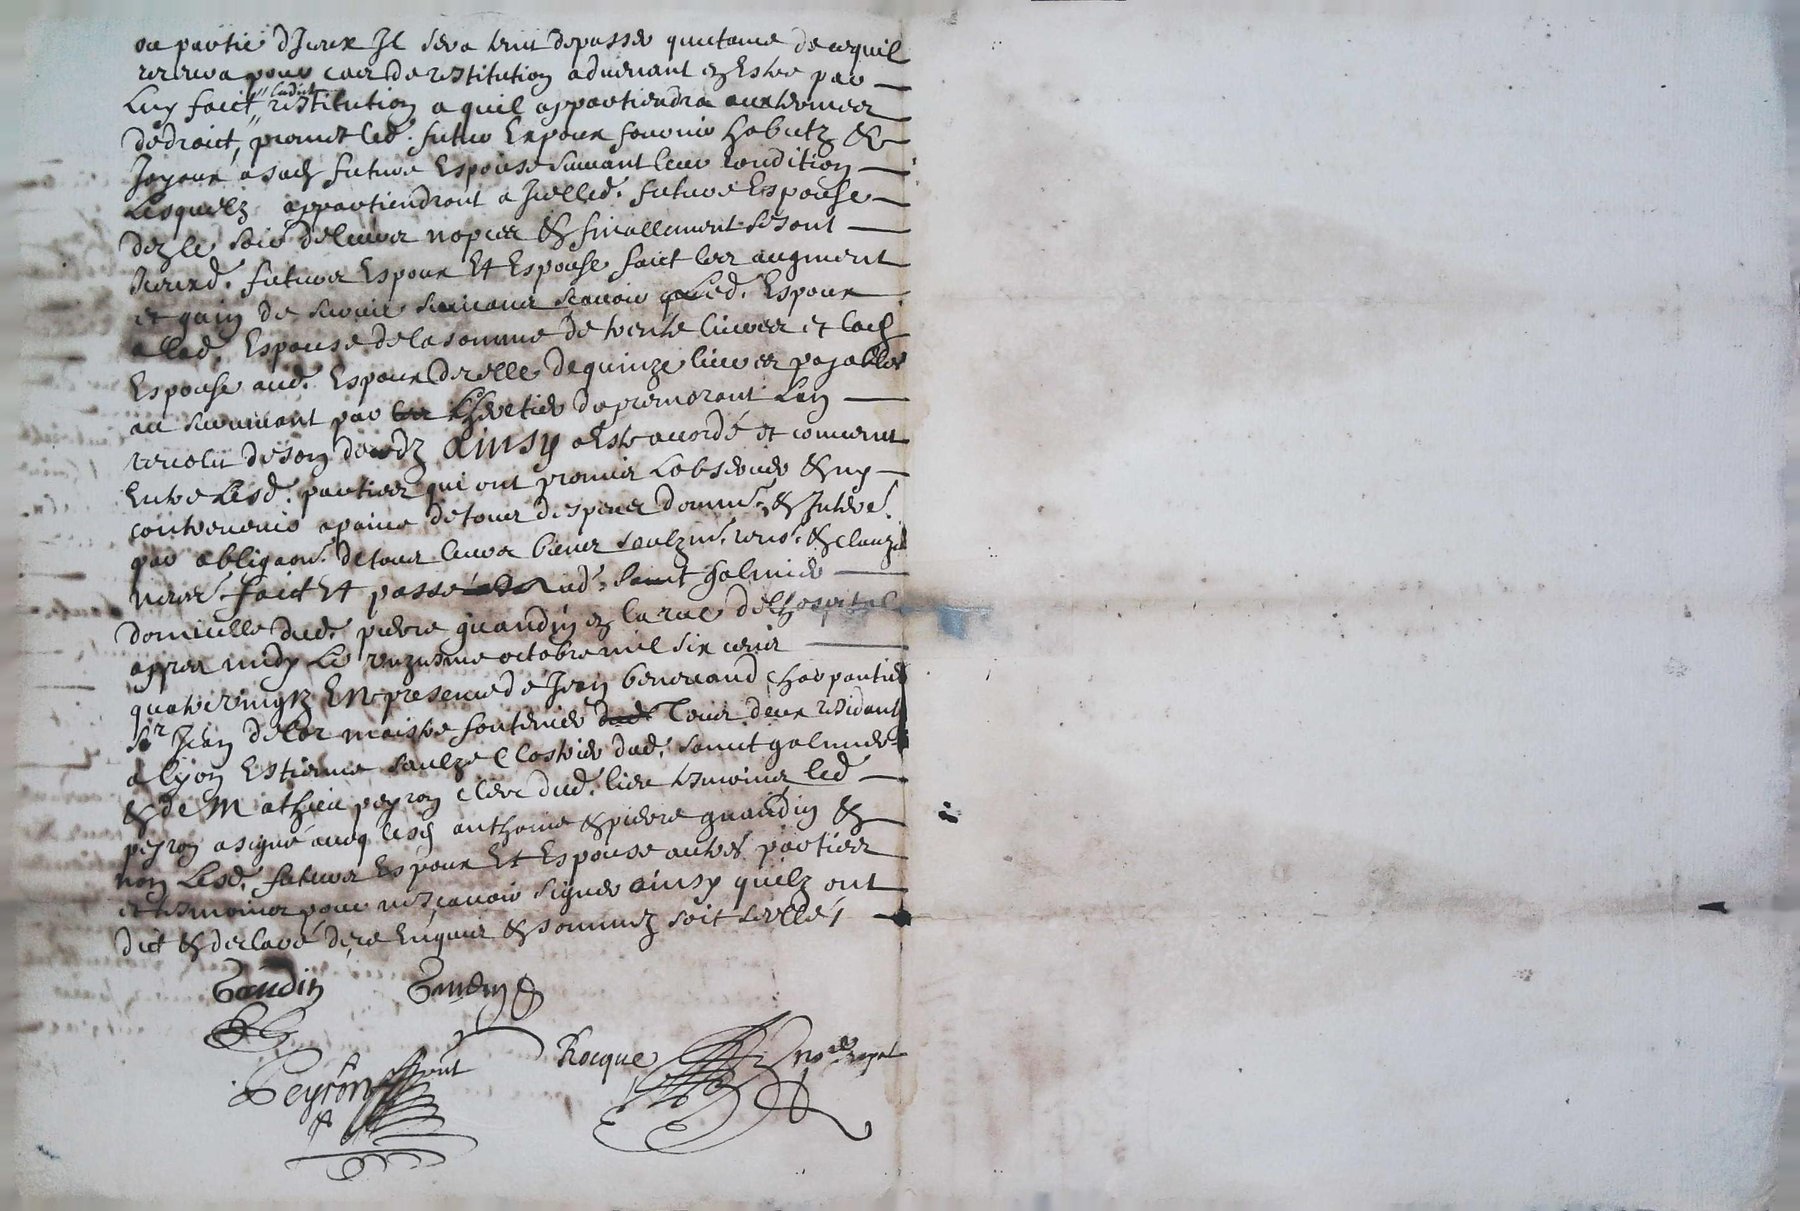 ou partie d'Iceux Il sera tenu de passer quictance de ce quil
recevra pour cas de restitution advenant et Estre par
Luy faict ladicte restitution a quil appartiendra aux termes
de droict, promet led. futur Expoux fournir habictz &
Joyaux a sad. future Espouse suivant leur condition
Lesquelz appartiendront a Icelled. future Espouse
dez le soir de leurs nopces & finallement se sont
Iceuxd. futurs Espoux Et Espouse faict les augment
et gain de survie suivans scavoir led. Espoux
a lad. Espouse de la somme de trente livres et lad.
Espouse aud. Espoux d'icelle de quinze livres payables
au survivant par lheretier du premorant Lan
revolu de son decedz Ainsy a este accordé et convenu
Entre Lesd. parties qui ont promis Lobserver & ny
contrevenir a paine de tous despens domm. & Intere.
par obligaon. de tous leurs biens soubzm. reno. & clauzes
necess. faict Et passé aud. Saint Galmier
domicille dud. pierre gaudin en la rue de lhospital
appres midy Le unzieme octobre mil six cens
quatre vingtz En presence de Jean benevand charpantier
Sr Jean delor maistre foutenier tous deux residants
a lyon Estienne saulze Clostrier dud. saint galmier
& de Mathieu peyron clerc dud. lieu tesmoins led.
peyron a signé avecq lesd. anthoine & pierre gaudin &
non Lesd. futurs Espoux Et Espouse autres parties
et tesmoins pour ne scavoir signer ainsy quilz ont
dict & declaré de ce Enquis & sommez soit scellé
Gaudin Gaudin
Peyron Rocque no.re royal